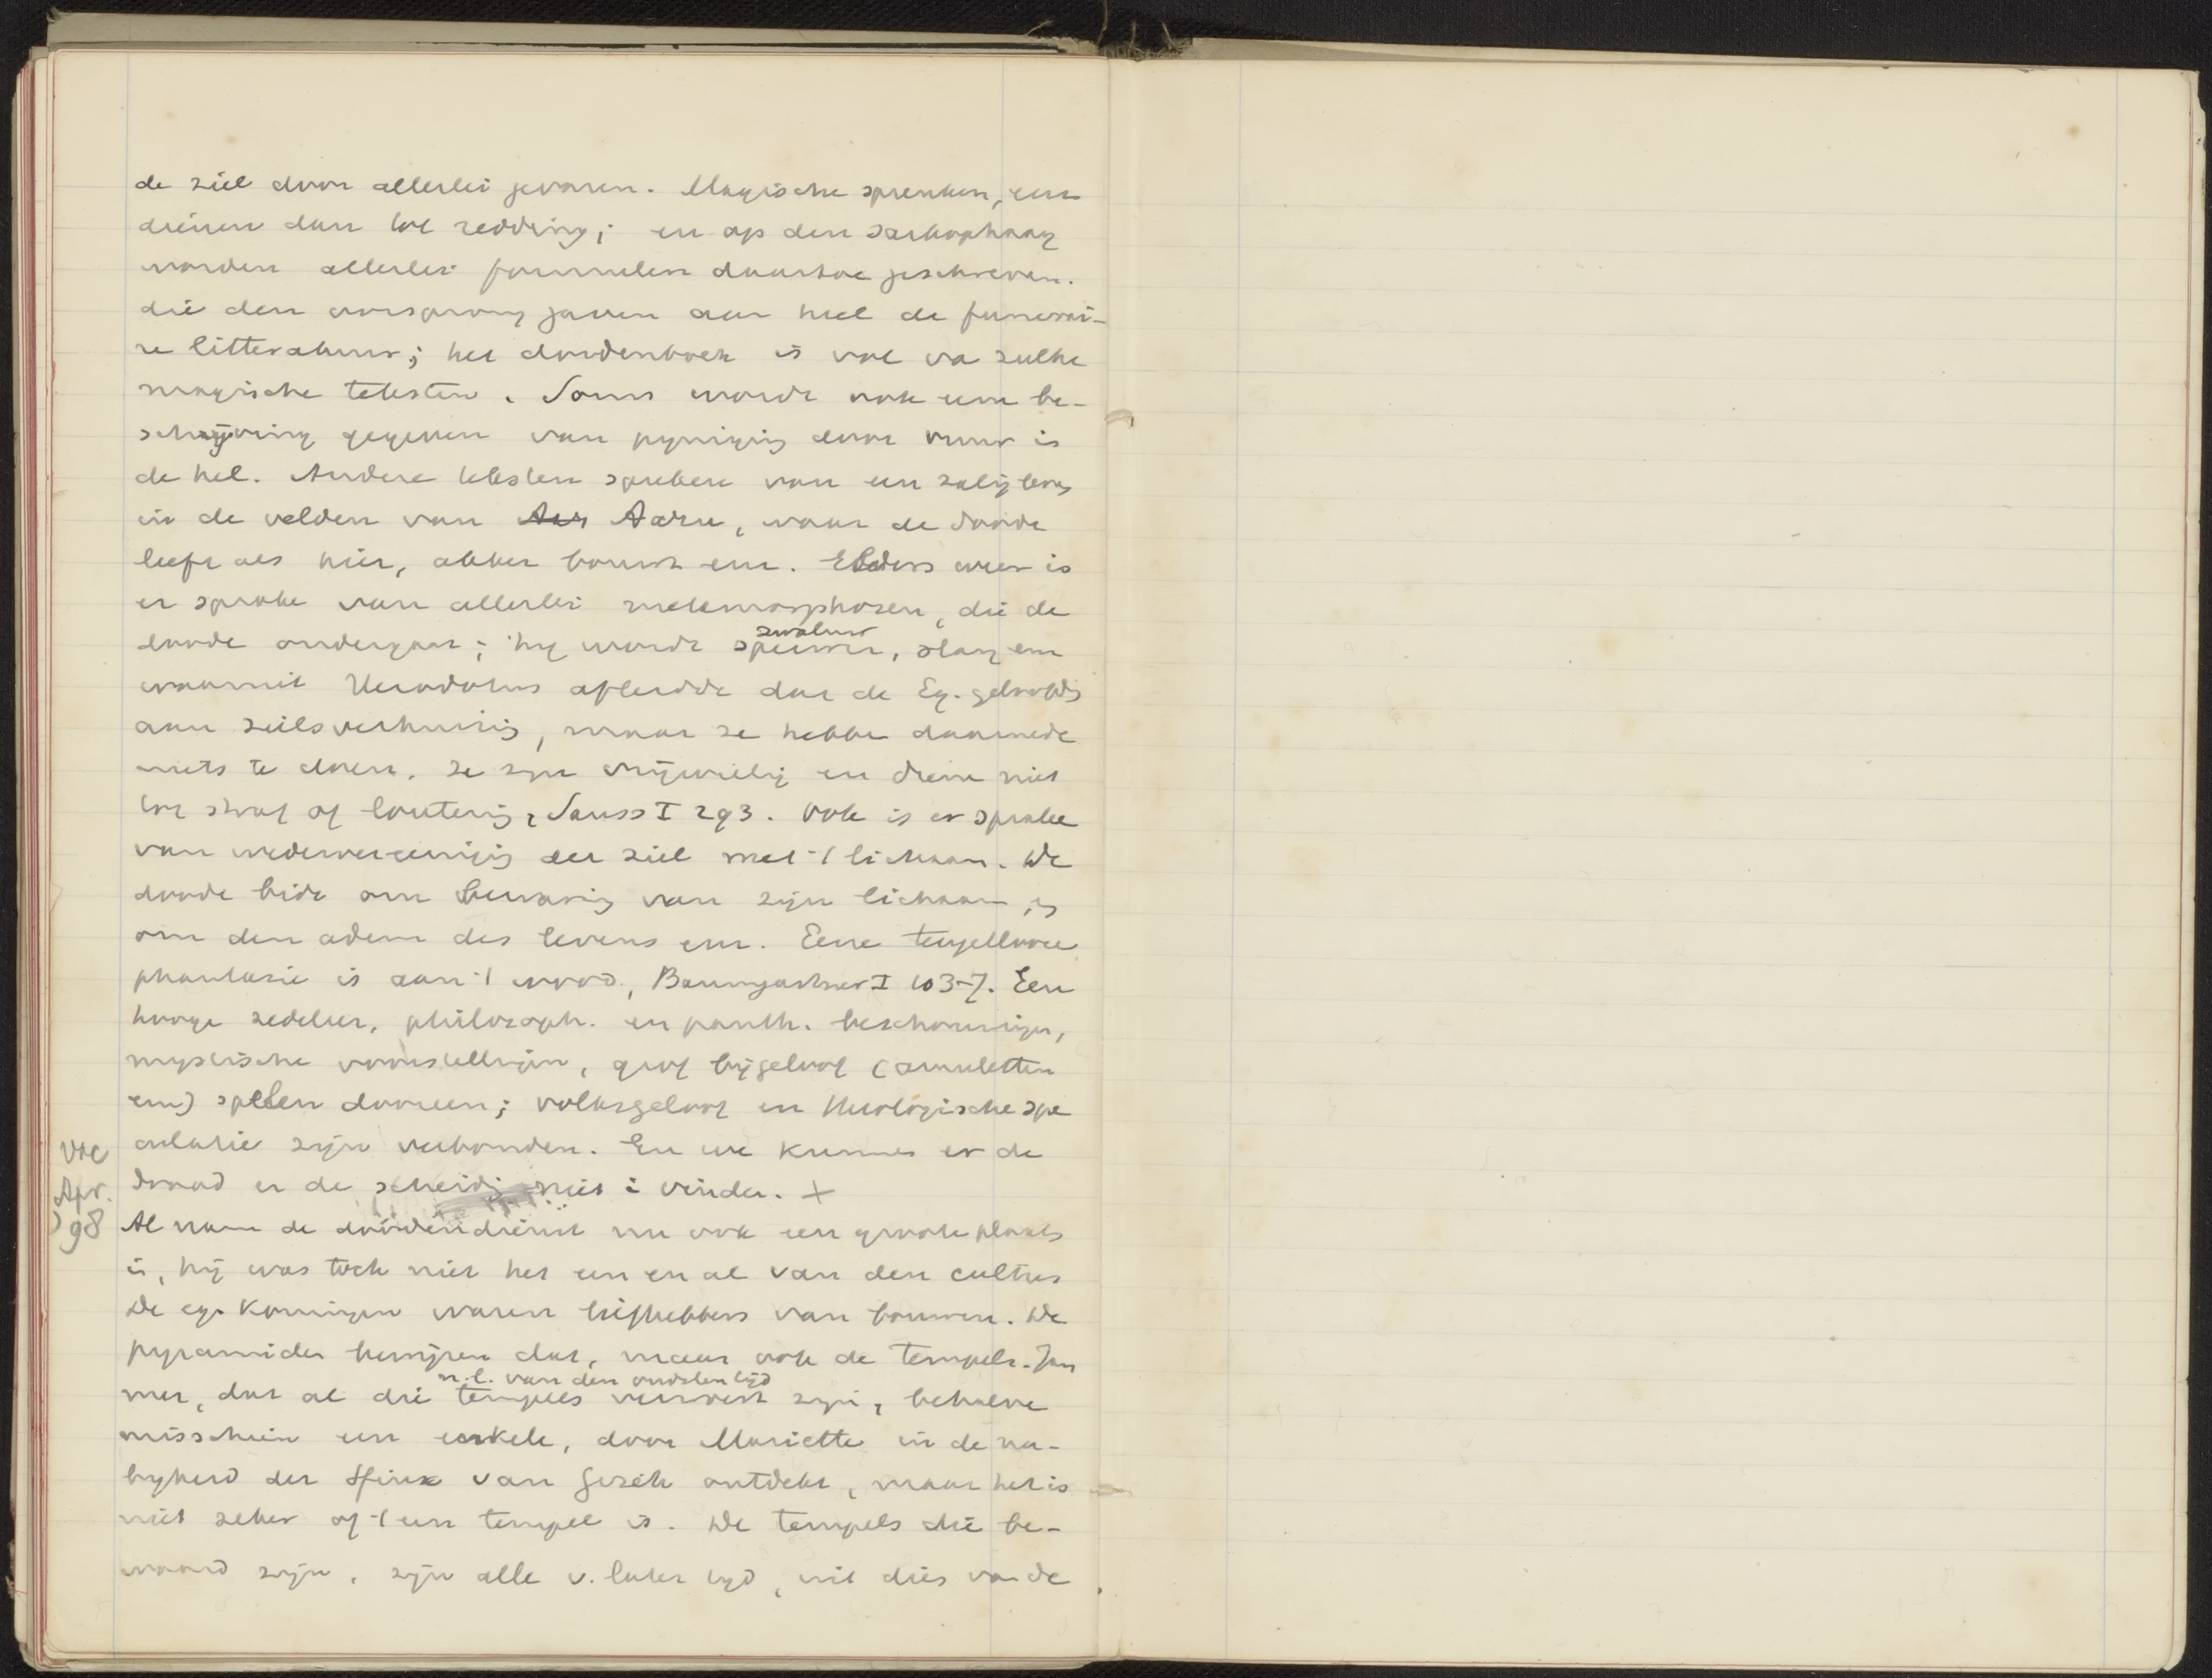 de ziel door allerlei gevaren. Magische spreuken, enz
dienen dan tot redding; en op den sarkophaag
worden allerlei formulen daartoe geschreven.
die den oorsprong gaven aan heel de funerai-
re litteratuur; het doodenboek is vol va zulke
magische teksten. Soms wordt ook eene be-
schrijving gegeven van pyniging door vuur in
de hel. Andere teksten spreken van een zalig leven
in de velden van Aar Aaru, waar de doode
leeft als hier, akker bouwt enz. Elders weer is
er sprake van allerlei metamorphosen, die de
doode ondergaat; hij wordt sperwer, slang enz
zwaluw
waaruit Herodotus afleidde dat de Eg. geloofden
aan zielsverhuizing, maar ze hebben daarmede
niets te doen. Ze zijn vrijwillig en dienen niet
tot straf of loutering, Sauss I 293. Ook is er sprake
van wedervereeniging der ziel met 't lichaam. De
doode bidt om bewaring van zijn lichaam, en
om den adem des levens enz. Eene teugellooze
phantasie is aan 't woord, Baumgartner I 103-7. Een
hooge zedeleer, philosoph. en panth. beschouwingen,
mystische voorstellingen, grof bijgeloof (amuletten
enz) spelen dooreen; volksgeloof en theologische spe
culatie zijn verbonden. En we kunnen er de
draad en de scheiding niet in vinden. +
Vac
Apr.
98
Al nam de doodendienst nu ook een groote plaats
in, hij was toch niet het een en al van den cultus
De eg. Koningen waren liefhebbers van bouwen. De
pyramiden bewijzen dat, maar ook de tempels. Jam
mer, dat al die tempels verwoest zijn, behalve
n.l. van den oudsten tijd
misschien een enkele, door Mariette in de na-
byheid der Sfinx van Gizeh ontdekt, maar het is
niet zeker of 't een tempel is. De tempels die be-
waard zijn, zijn alle v. later tijd, uit dies van de